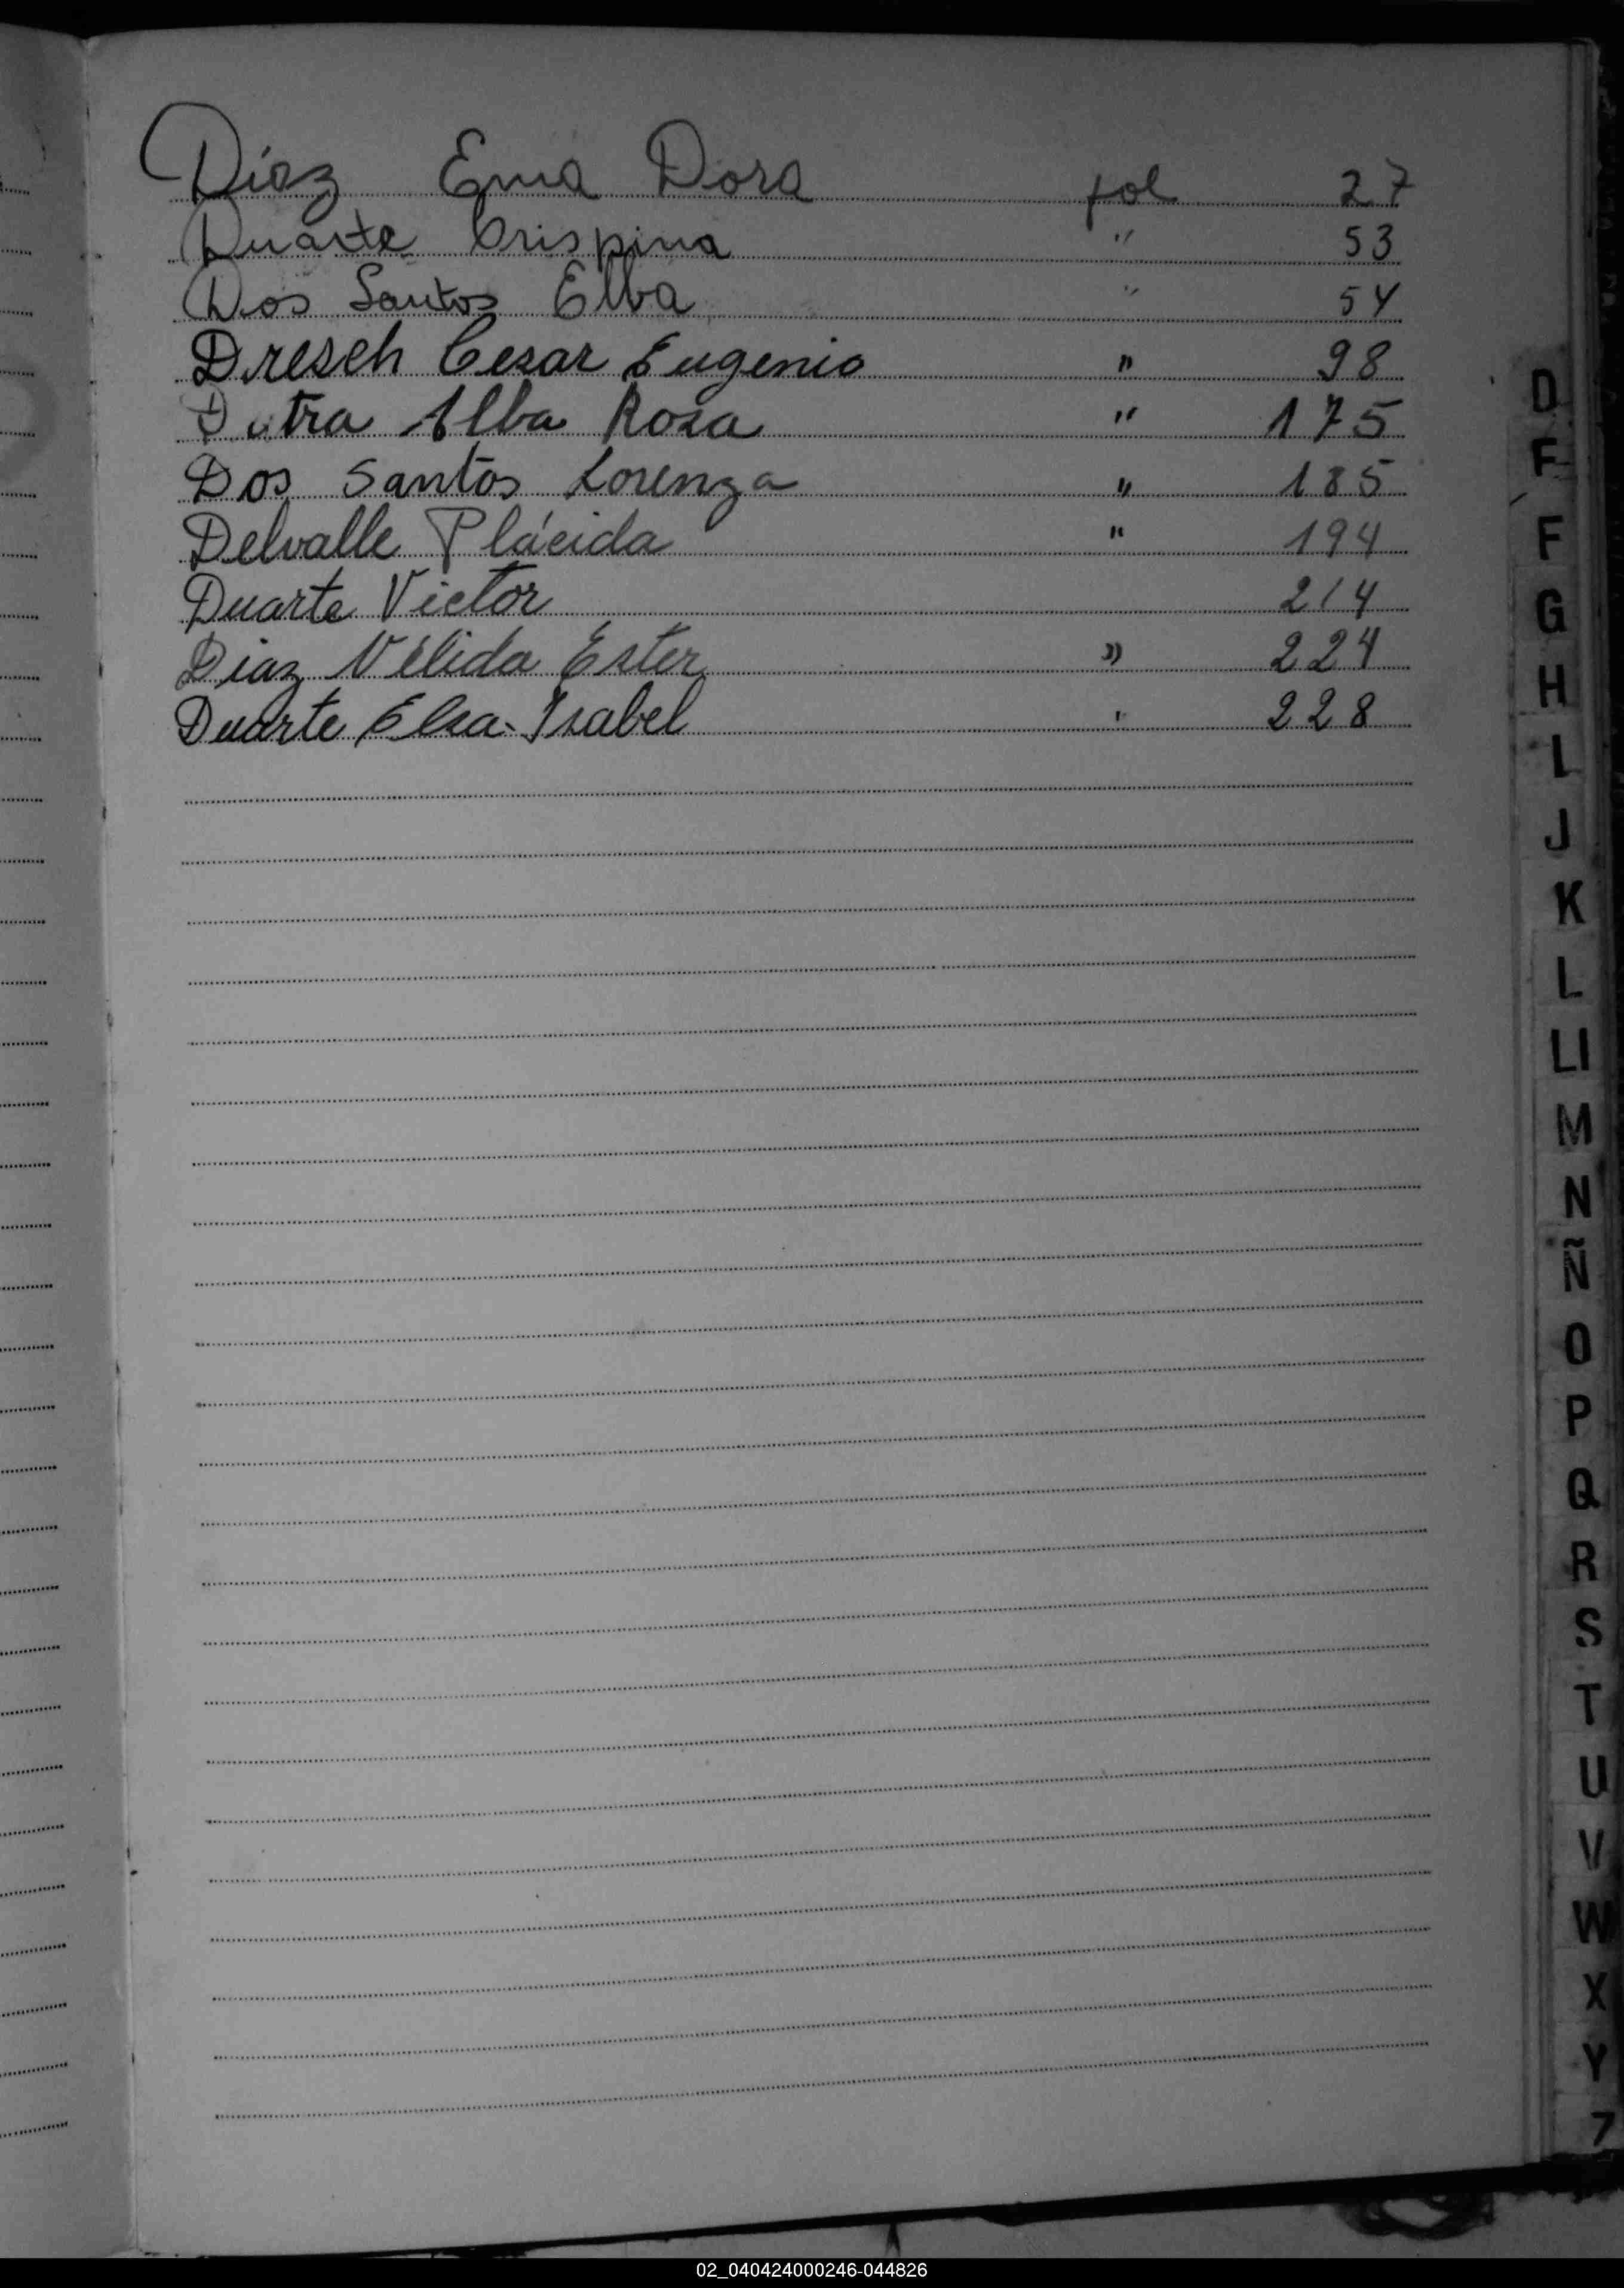 Díaz Ema Dora fol 27
Duarte Crispina " 53
Dos Santos Elba " 54
Dresch Cesar Eugenio " 98
Dutra Alba Rosa " 175
Dos Santos Lorenza " 185
Delvalle Plácida " 194
Duarte Victor 214
Diaz Nélida Ester " 224
Duarte Elsa Isabel " 228
D
F
F
G
H
I
J
K
L
Ll
M
N
Ñ
O
P
Q
R
S
T
U
V
W
X
Y
Z
02_040424000246-044826